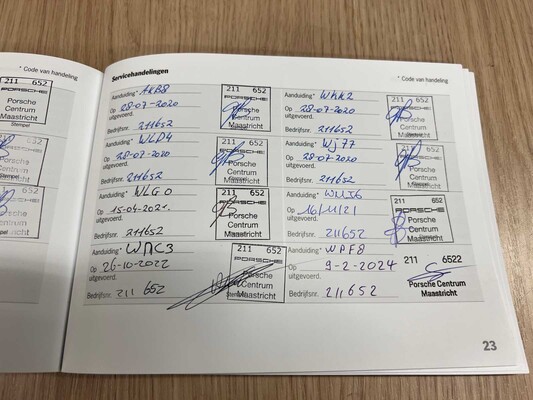 * Code van handeling
Servicehandelingen
* Code van handeling
Aanduiding* AKB8
Op uitgevoerd. 28-07-2020
Bedrijfsnr. 211652
211 652
PORSCHE
Porsche
Centrum
Maastricht
Aanduiding*
Op uitgevoerd. 28-07-2020
Bedrijfsnr. 211652
211 652
PORSCHE
Porsche
Centrum
Maastricht
Aanduiding* WLP4
Op uitgevoerd. 28-07-2020
Bedrijfsnr. 211652
211 652
PORSCHE
Porsche
Centrum
Maastricht
Aanduiding* WJ77
Op uitgevoerd. 28-07-2020
Bedrijfsnr. 211652
211 652
PORSCHE
Porsche
Centrum
Maastricht
Aanduiding* WLG0
Op uitgevoerd. 15-04-2021.
Bedrijfsnr. 211652
211 652
PORSCHE
Porsche
Centrum
Maastricht
Aanduiding*
Op uitgevoerd. 16/11/21
Bedrijfsnr. 211652
211 652
PORSCHE
Porsche
Centrum
Maastricht
Aanduiding* WMC3
Op uitgevoerd. 26-10-2022
Bedrijfsnr. 211 652
211 652
PORSCHE
Porsche
Centrum
Maastricht
Aanduiding* WPF8
Op uitgevoerd. 9-2-2024
Bedrijfsnr. 211652
211 6522
Porsche Centrum
Maastricht
211 652
PORSCHE
Porsche
Centrum
Maastricht
Stempel
652
PORSCHE
Porsche
Centrum
Maastricht
23